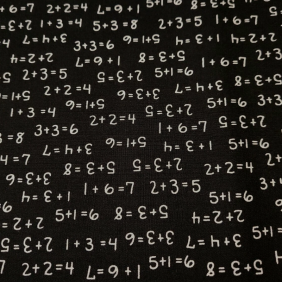 +6=7 2+2=4 7=6+1 5+1=6 8=3+5
=2+3 1+3=4 5+3=8 2+3=5 1+6=7 5
4 7=4+3 3+3=6 6=5+1 4=3+1 4=2+2
4=2+2 7=6+1 8=3+5 1+6=7 2+3
5 2+3=5 5=3+2 5+1=6 8=3+5
=5+1 2+2=4 6=3+3 7=4+3 5+1=6 3+3
1+3=4 6=5+1 2+2=4 5=3+2
=8 3+3=6 1+6=7 2+3=5
4=7 7=4+3 6=5+1 4=3+1 5+1=6
6=3+3 8=3+5 5=3+2 2+2=4
4=3+1 1+6=7 2+3=5 5+1=6 3+
6 5+1=6 8=3+5 4=2+2
=2+2
5=3+2 1+3=4 6=3+3 7=4+3 5+1=
7 2+2=4 7=6+1 5+1=6 8=3+5